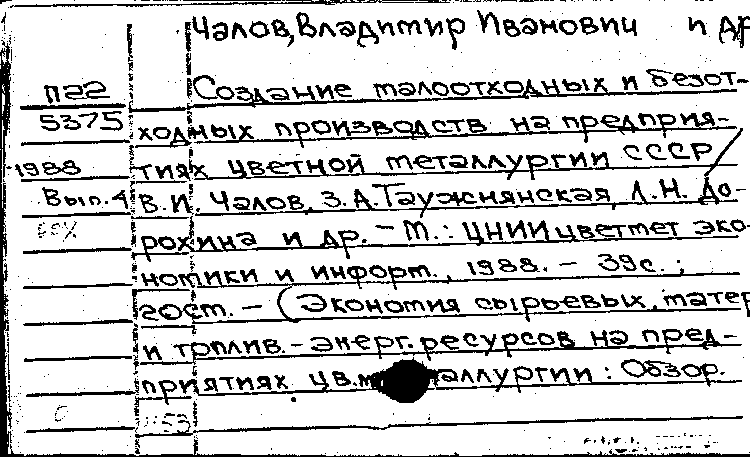 Чалов, Владимир Иванович и др
П22 Создание малоотходных и безот-
5375 ходных производств на предприя-
1988 тиях цветной металлургии СССР /
Вып. 4 В.И. Чалов, З.А. Таужнянская, Л.Н. До-
рохина и др. - М.: ЦНИИцветмет эко-
номики и информ., 1988. - 39с.;
20см. - (Экономия сырьевых, матер
и топлив.-энерг. ресурсов на пред-
приятиях цв. металлургии : Обзор.
53